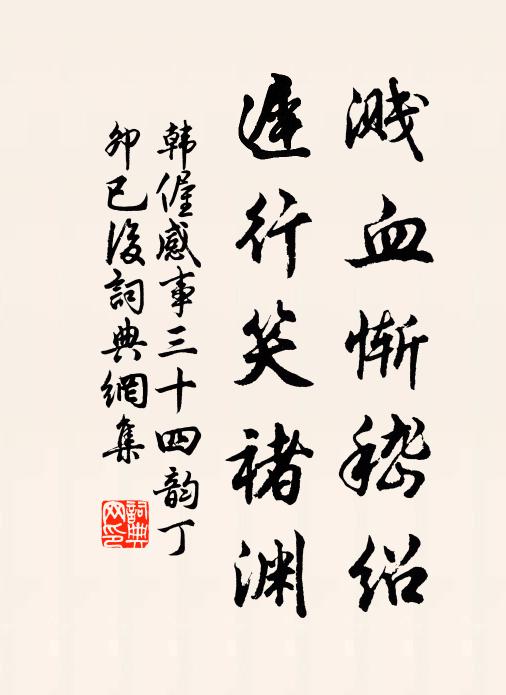 溅血惭嵇绍
迟行笑褚渊
韩偓感事三十四韵丁
卯已后词典網集
詞典网印